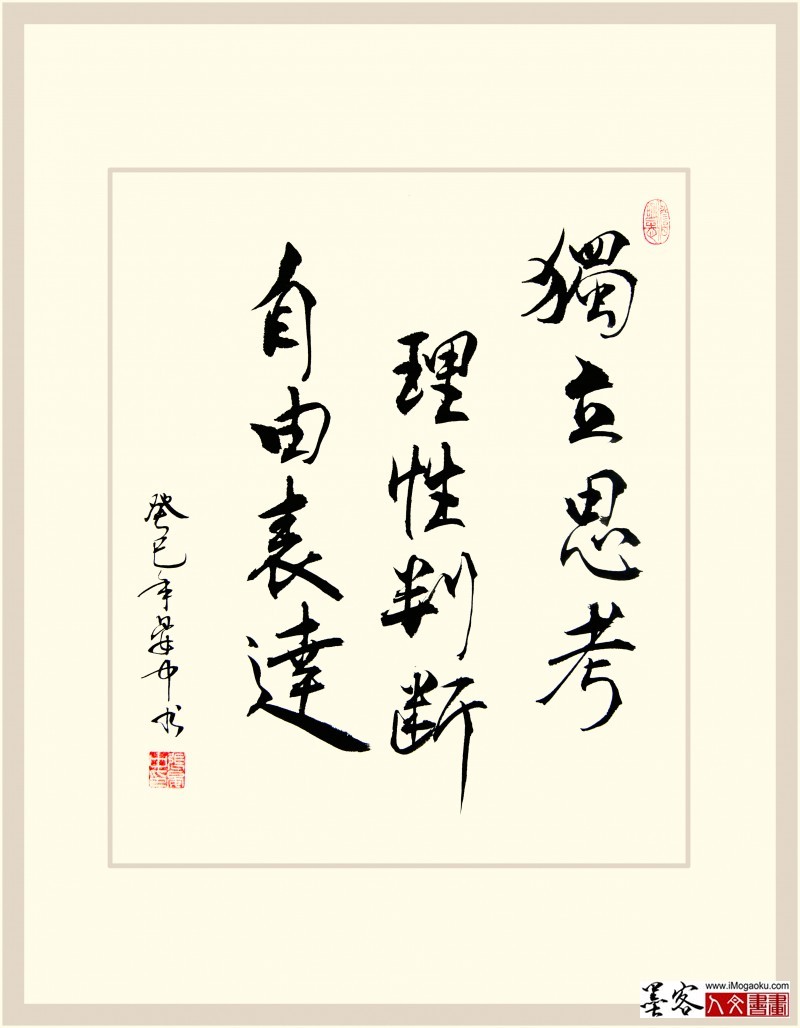 獨立思考
理性判断
自由表達
癸巳年晏中书
墨客
www.iMogaoku.com
人文書畫